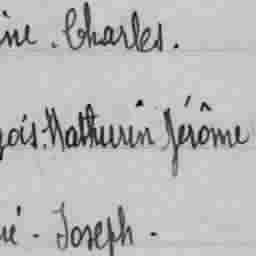 ine. Charles.
çois. Mathurin Jérôme
é - Joseph -